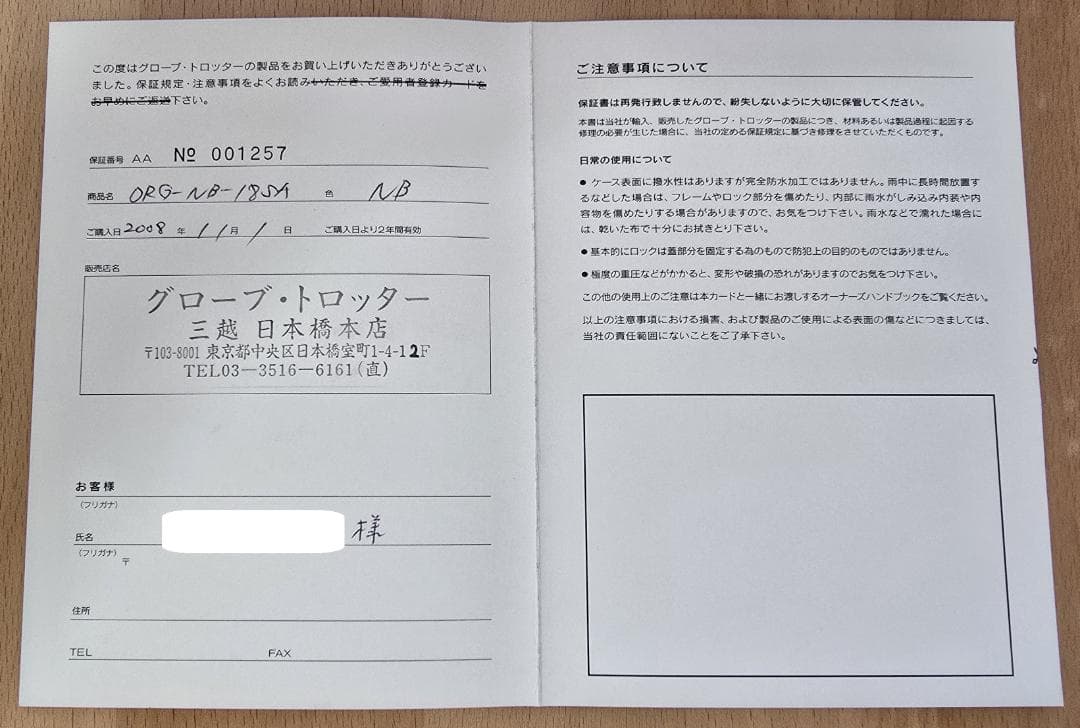 この度はグローブ・トロッターの製品をお買い上げいただきありがとうござい
ました。保証規定・注意事項をよくお読みいただき、ご愛用者登録カードを
お早めにご返送下さい。
保証番号 AA № 001257
商品名 ORG-NB-18SA 色 NB
ご購入日 2008 年 11 月 1 日 ご購入日より2年間有効
販売店名
グローブ・トロッター
三越 日本橋本店
〒103-8001 東京都中央区日本橋室町1-4-1 2F
TEL03-3516-6161(直)
お客様
(フリガナ)
氏名 様
(フリガナ)
〒
住所
TEL FAX
ご注意事項について
保証書は再発行致しませんので、紛失しないように大切に保管してください。
本書は当社が輸入、販売したグローブ・トロッターの製品につき、材料あるいは製品過程に起因する
修理の必要が生じた場合に、当社の定める保証規定に基づき修理をさせていただくものです。
日常の使用について
● ケース表面に撥水性はありますが完全防水加工ではありません。雨中に長時間放置す
るなどした場合は、フレームやロック部分を傷めたり、内部に雨水がしみ込み内装や内
容物を傷めたりする場合がありますので、お気をつけ下さい。雨水などで濡れた場合に
は、乾いた布で十分にお拭きとり下さい。
● 基本的にロックは蓋部分を固定する為のもので防犯上の目的のものではありません。
● 極度の重圧などがかかると、変形や破損の恐れがありますのでお気をつけ下さい。
この他の使用上のご注意は本カードと一緒にお渡しするオーナーズハンドブックをご覧ください。
以上の注意事項における損害、および製品のご使用による表面の傷などにつきましては、
当社の責任範囲にないことをご了承下さい。